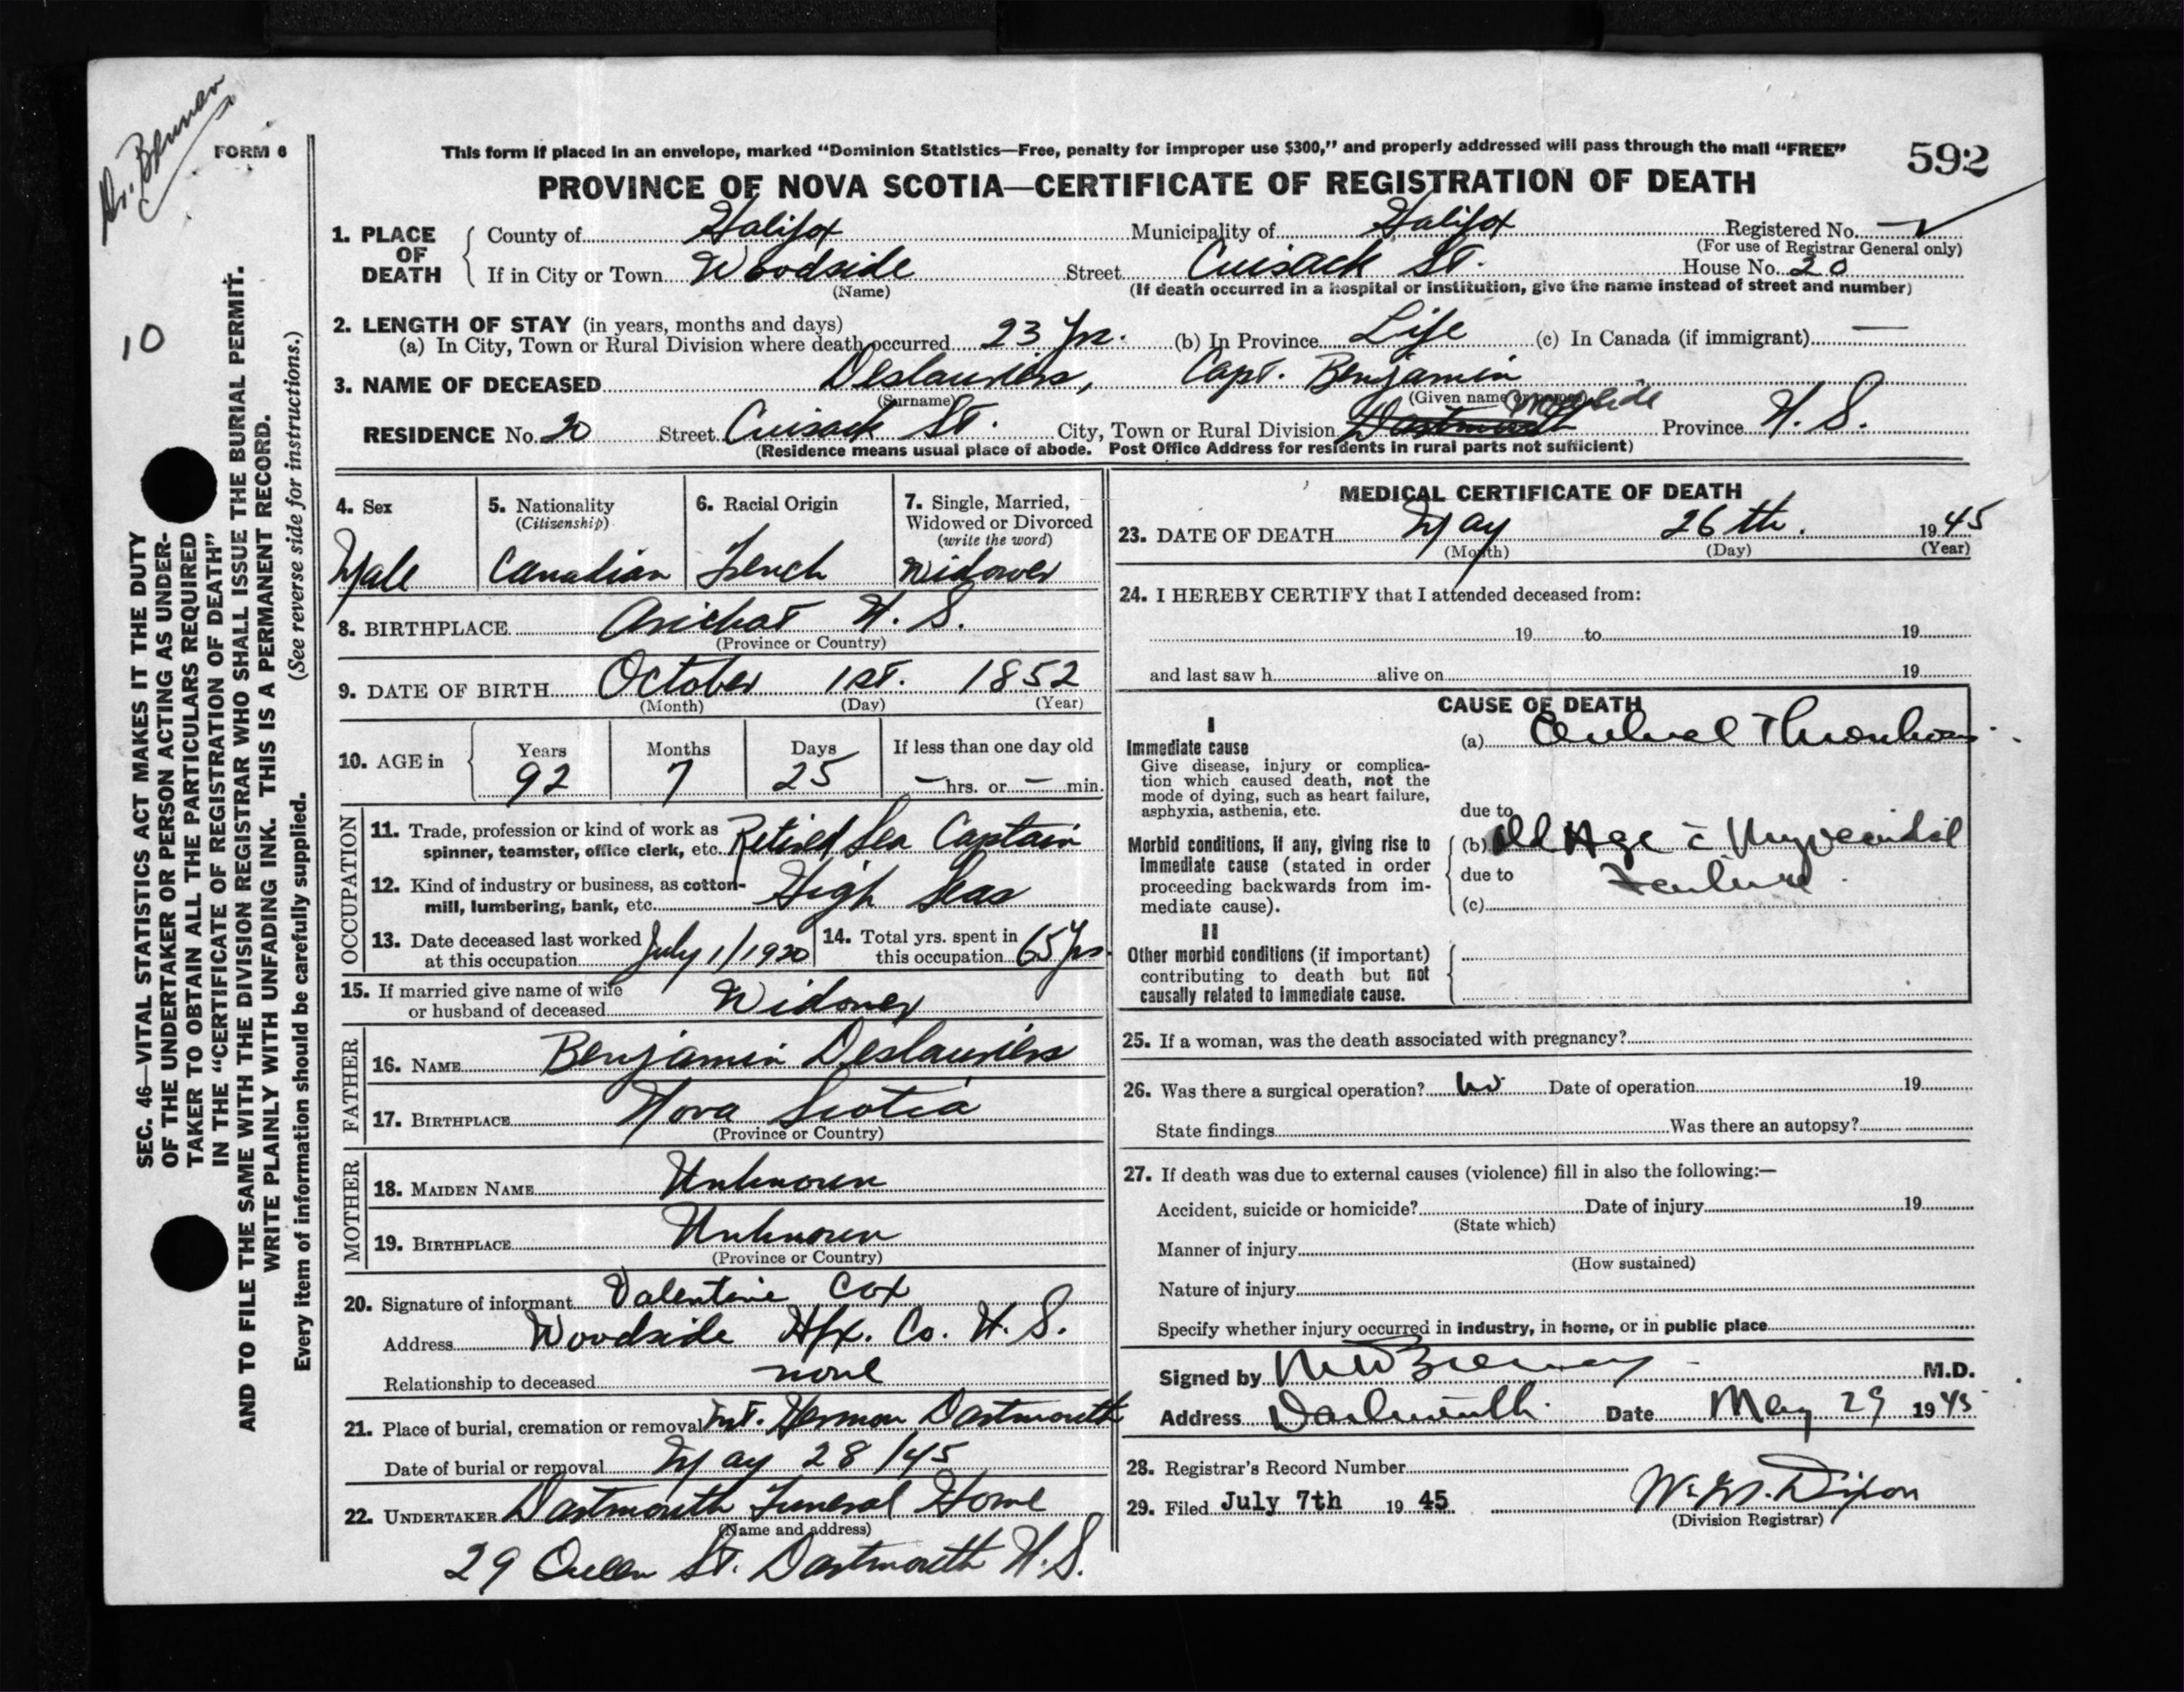 Dr. Brennan
FORM 6
This form if placed in an envelope, marked "Dominion Statistics—Free, penalty for improper use $300," and properly addressed will pass through the mail "FREE"
592
PROVINCE OF NOVA SCOTIA—CERTIFICATE OF REGISTRATION OF DEATH
1. PLACE OF DEATH
County of Halifax Municipality of Halifax Registered No.
(For use of Registrar General only)
If in City or Town Woodside Street Cuisack St. House No. 20
(Name) (If death occurred in a hospital or institution, give the name instead of street and number)
10
2. LENGTH OF STAY (in years, months and days)
(a) In City, Town or Rural Division where death occurred 23 Yrs. (b) In Province Life (c) In Canada (if immigrant) —
3. NAME OF DECEASED Deslauriers, Capt. Benjamin
(Surname) (Given name or names)
Woodside
RESIDENCE No. 20 Street Cuisack St. City, Town or Rural Division Dartmouth Province N. S.
(Residence means usual place of abode. Post Office Address for residents in rural parts not sufficient)
SEC. 46—VITAL STATISTICS ACT MAKES IT THE DUTY
OF THE UNDERTAKER OR PERSON ACTING AS UNDER-
TAKER TO OBTAIN ALL THE PARTICULARS REQUIRED
IN THE "CERTIFICATE OF REGISTRATION OF DEATH"
AND TO FILE THE SAME WITH THE DIVISION REGISTRAR WHO SHALL ISSUE THE BURIAL PERMIT.
WRITE PLAINLY WITH UNFADING INK. THIS IS A PERMANENT RECORD.
Every item of information should be carefully supplied. (See reverse side for instructions.)
4. Sex
Male
5. Nationality
(Citizenship)
Canadian
6. Racial Origin
French
7. Single, Married,
Widowed or Divorced
(write the word)
Widower
8. BIRTHPLACE Arichat N. S.
(Province or Country)
9. DATE OF BIRTH October 1st. 1852
(Month) (Day) (Year)
10. AGE in
Years Months Days If less than one day old
92 7 25 — hrs. or — min.
OCCUPATION
11. Trade, profession or kind of work as
spinner, teamster, office clerk, etc. Retired Sea Captain
12. Kind of industry or business, as cotton-
mill, lumbering, bank, etc. High Seas
13. Date deceased last worked
at this occupation July 1/1920
14. Total yrs. spent in
this occupation 65 Yrs.
15. If married give name of wife
or husband of deceased Widower
FATHER
16. NAME Benjamin Deslauriers
17. BIRTHPLACE Nova Scotia
(Province or Country)
MOTHER
18. MAIDEN NAME Unknown
19. BIRTHPLACE Unknown
(Province or Country)
20. Signature of informant Valentine Cox
Address Woodside Hfx. Co. N. S.
Relationship to deceased none
21. Place of burial, cremation or removal Mt. Hermon Dartmouth
Date of burial or removal May 28/45
22. UNDERTAKER Dartmouth Funeral Home
(Name and address)
29 Queen St. Dartmouth N. S.
MEDICAL CERTIFICATE OF DEATH
23. DATE OF DEATH May 26th. 1945
(Month) (Day) (Year)
24. I HEREBY CERTIFY that I attended deceased from:
19 to 19
and last saw h alive on 19
CAUSE OF DEATH
I
Immediate cause
Give disease, injury or complica-
tion which caused death, not the
mode of dying, such as heart failure,
asphyxia, asthenia, etc.
(a) Cerebral Thrombosis.
due to
Morbid conditions, if any, giving rise to
immediate cause (stated in order
proceeding backwards from im-
mediate cause).
(b) Old Age c̄ Myocardial
due to Failure.
(c)
II
Other morbid conditions (if important)
contributing to death but not
causally related to immediate cause.
25. If a woman, was the death associated with pregnancy?
26. Was there a surgical operation? No Date of operation 19
State findings Was there an autopsy?
27. If death was due to external causes (violence) fill in also the following:—
Accident, suicide or homicide? Date of injury 19
(State which)
Manner of injury
(How sustained)
Nature of injury
Specify whether injury occurred in industry, in home, or in public place
Signed by M.D.
Address Dartmouth. Date May 29 1945
28. Registrar's Record Number
29. Filed July 7th 1945 Dixon
(Division Registrar)